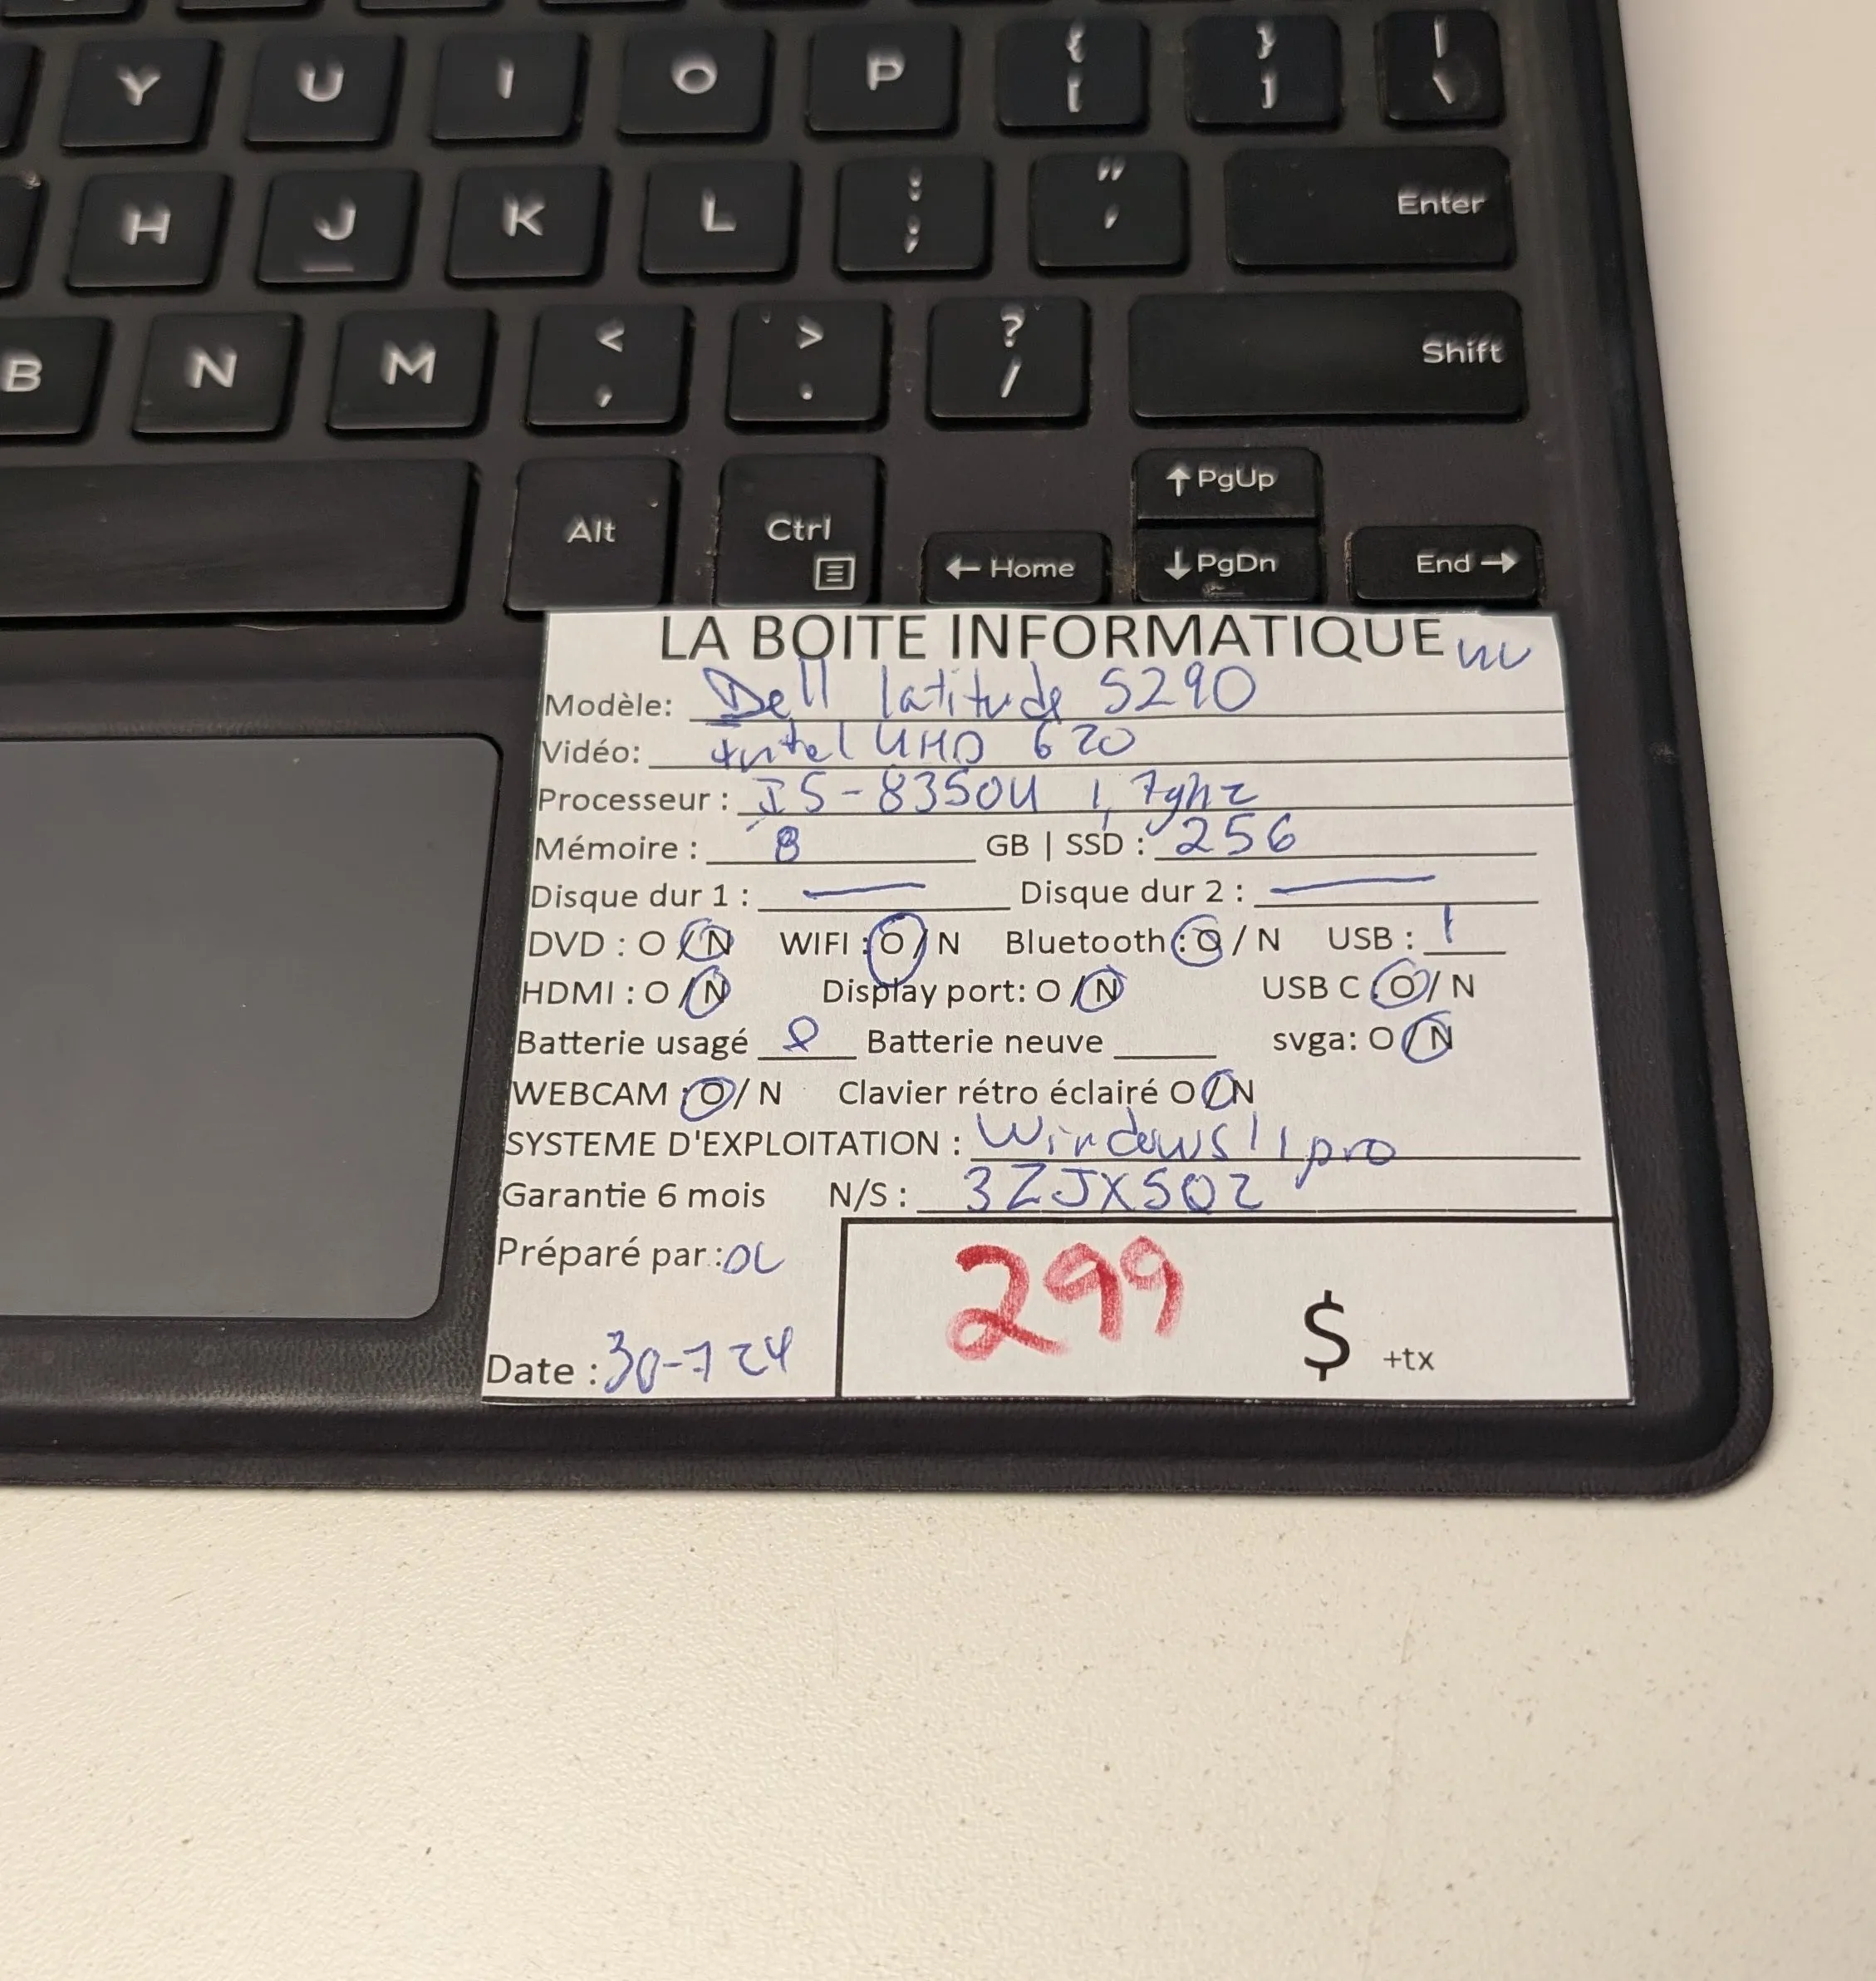 Y U I O P { [ } ] | \
H J K L : ; " ' Enter
B N M < , > . ? / Shift
Alt Ctrl ← Home ↑ PgUp ↓ PgDn End →
LA BOITE INFORMATIQUE
Modèle: Dell latitude 5290
Vidéo: intel UHD 620
Processeur : I5-8350U 1,7ghz
Mémoire : 8 GB | SSD : 256
Disque dur 1 : — Disque dur 2 : —
DVD : O / N WIFI : O / N Bluetooth : O / N USB : 1
HDMI : O / N Display port: O / N USB C O / N
Batterie usagé Batterie neuve svga: O / N
WEBCAM : O / N Clavier rétro éclairé O / N
SYSTEME D'EXPLOITATION : Windows 11 pro
Garantie 6 mois N/S : 3ZJXSQ2
Préparé par :
299 $ +tx
Date : 30-7 24